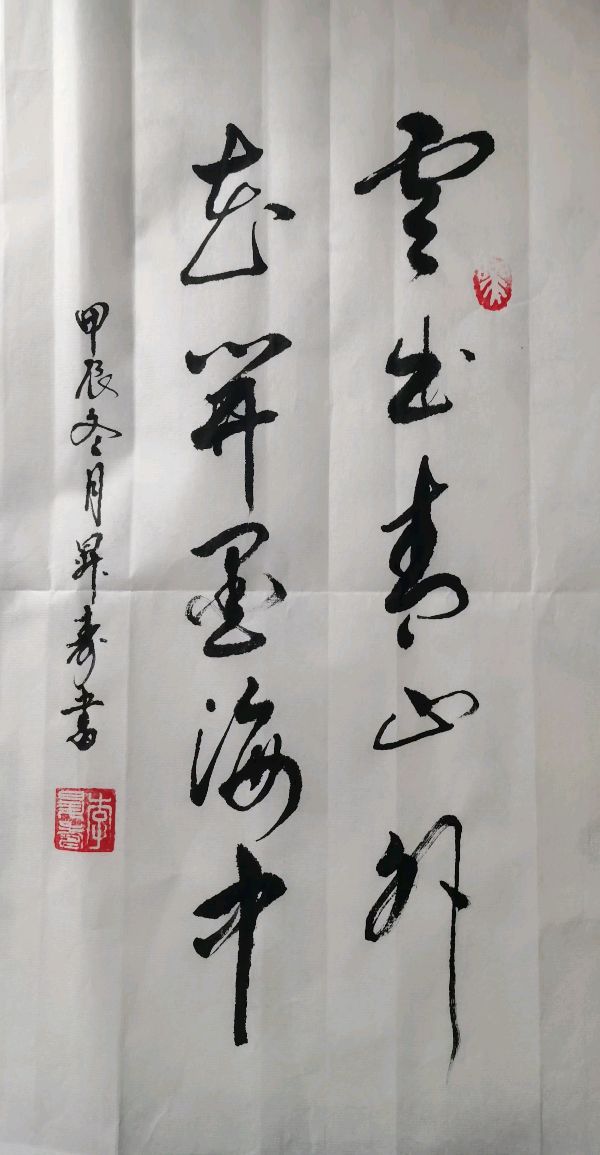 雲出青山外
花開墨海中
甲辰冬月昇壽書